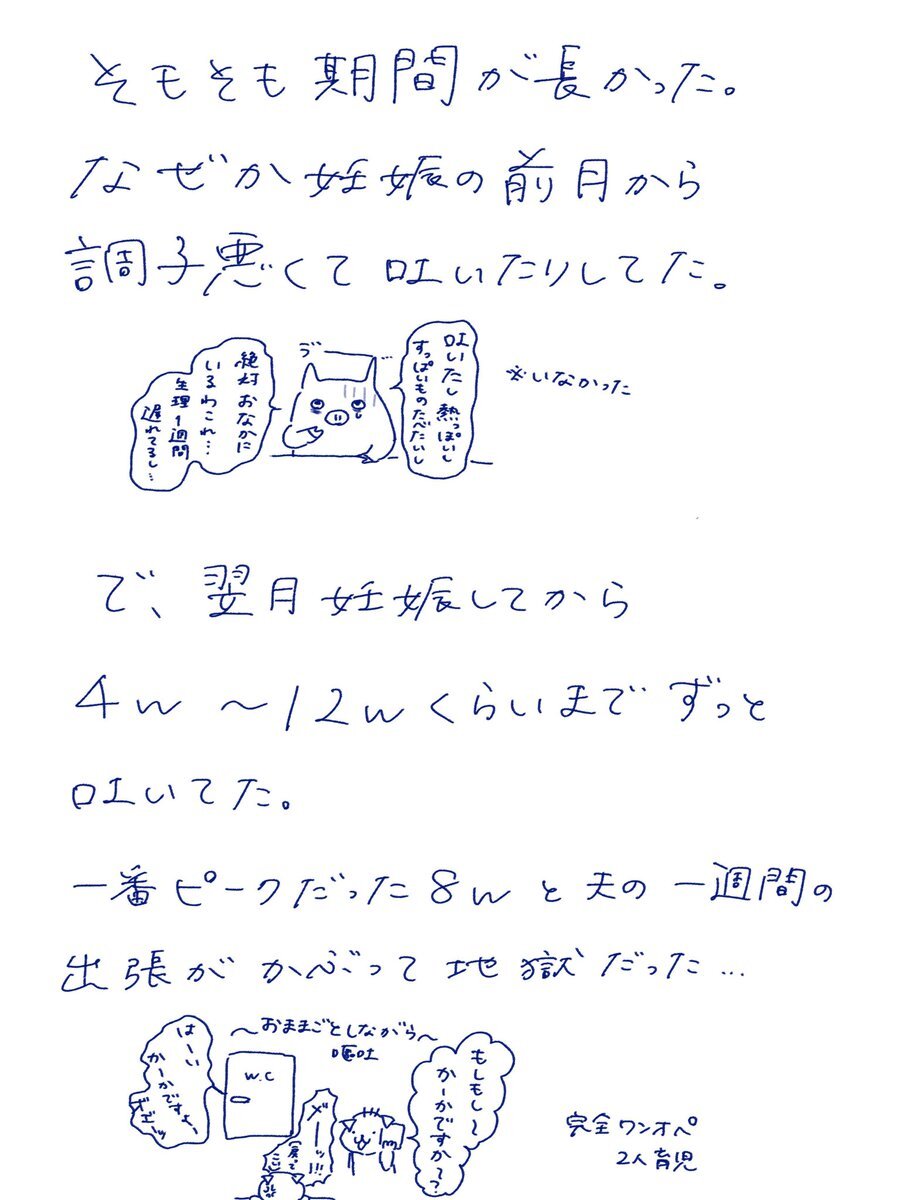 そもそも期間が長かった。
なぜか妊娠の前月から
調子悪くて吐いたりしてた。
吐いたし熱っぽいし
すっぱいものたべたいし
※いなかった
絶対おなかに
いるわこれ…
生理1週間
遅れてるし…
で、翌月妊娠してから
4w〜12wくらいまでずっと
吐いてた。
一番ピークだった8wと夫の一週間の
出張がかぶって地獄だった…
〜おままごとしながら〜
嘔吐
もしもし〜
かーかですか〜?
はーい
かーかですよー
W.C
完全ワンオペ
2人育児